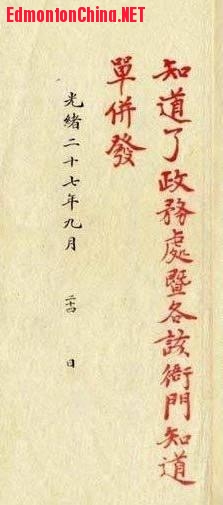 EdmontonChina.NET
知道了政務處暨各該衙門知道
單併發
光緒二十七年九月 二十四 日